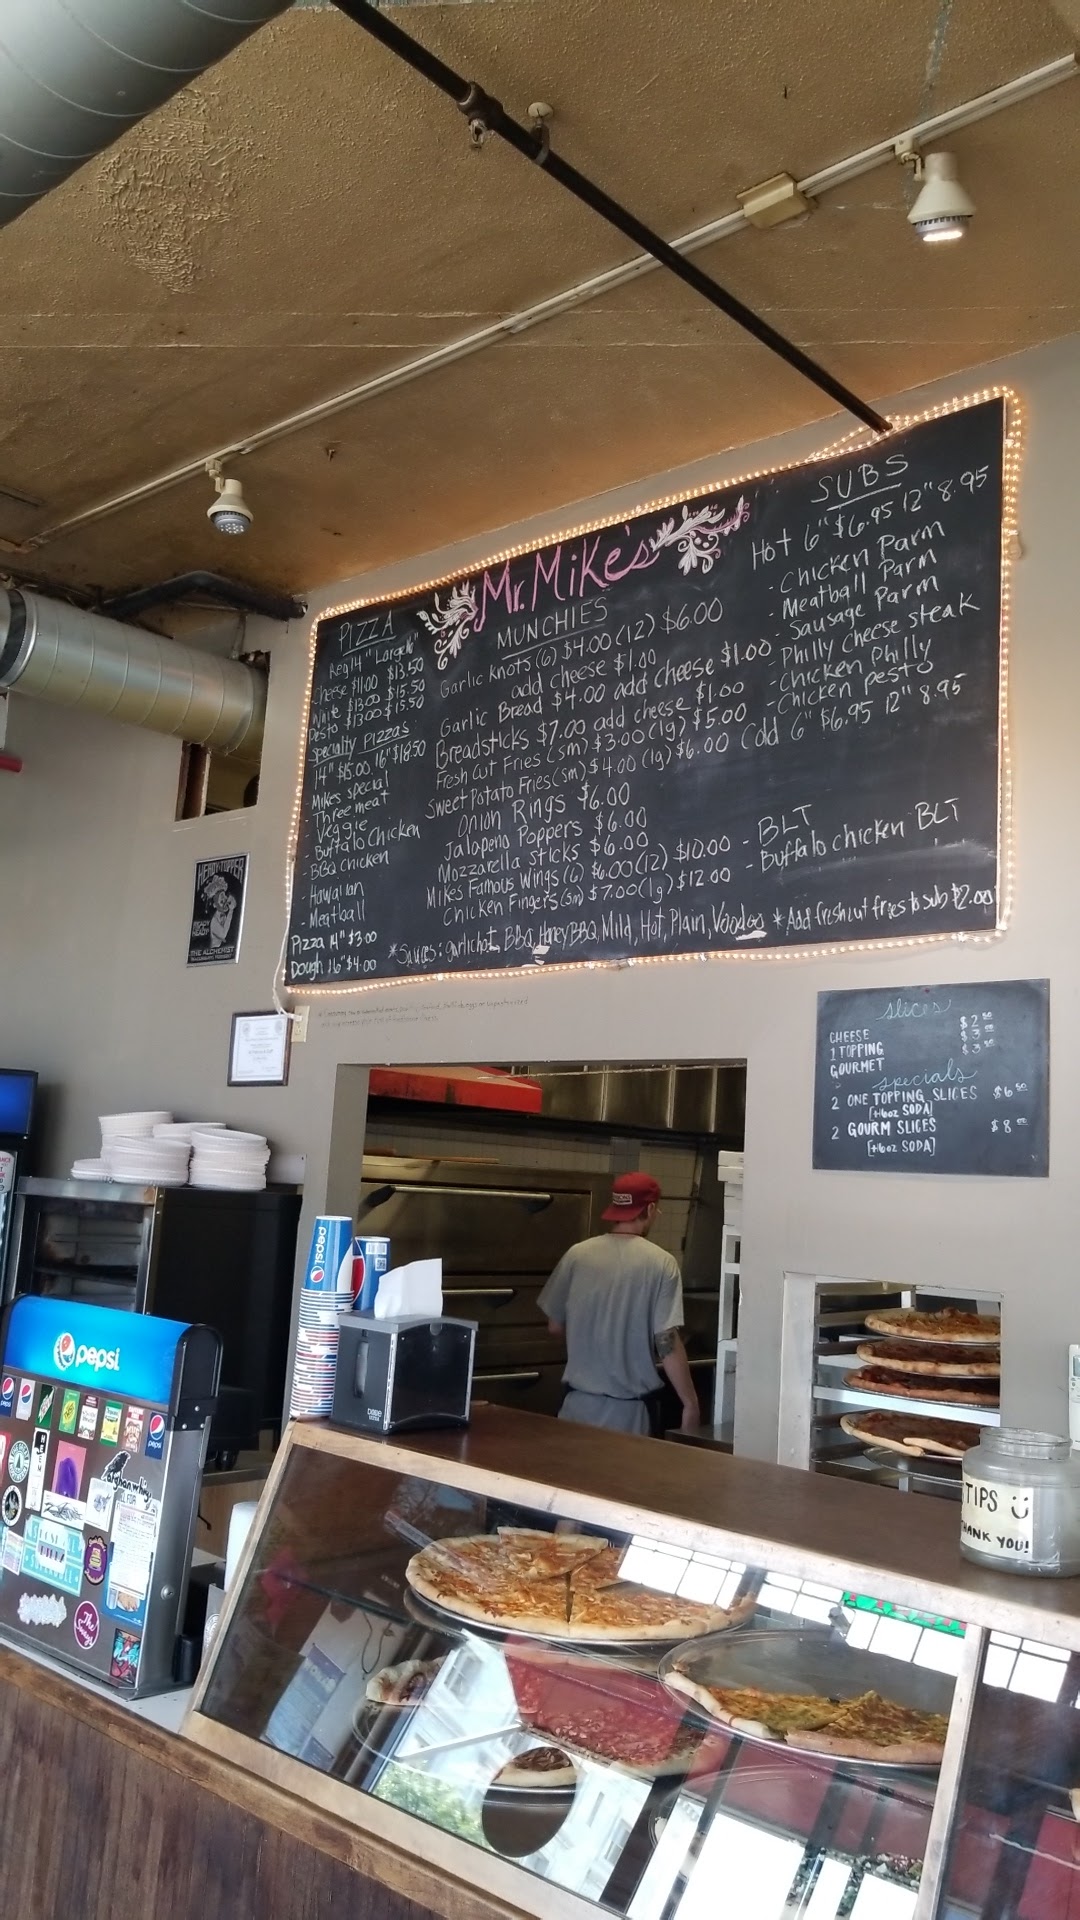 Mr. Mike's
PIZZA
Reg 14" Large 16"
Cheese $11.00 $13.50
White $13.00 $15.50
Pesto $13.00 $15.50
Specialty Pizzas
14" $15.00 16" $18.50
- Mikes special
- Three meat
- Veggie
- Buffalo Chicken
- BBQ chicken
- Hawaiian
- Meatball
Pizza 14" $3.00
Dough 16" $4.00
MUNCHIES
Garlic knots (6) $4.00 (12) $6.00
add cheese $1.00
Garlic Bread $4.00 add cheese $1.00
Breadsticks $7.00 add cheese $1.00
Fresh Cut Fries (sm) $3.00 (lg) $5.00
Sweet Potato Fries (sm) $4.00 (lg) $6.00
Onion Rings $6.00
Jalapeno Poppers $6.00
Mozzarella Sticks $6.00
Mikes Famous Wings (6) $6.00 (12) $10.00
Chicken Fingers (sm) $7.00 (lg) $12.00
*Sauces: garlic hot, BBQ, Honey BBQ, Mild, Hot, Plain, Voodoo
SUBS
Hot 6" $6.95 12" 8.95
- Chicken Parm
- Meatball Parm
- Sausage Parm
- Philly Cheese steak
- Chicken Philly
- Chicken Pesto
Cold 6" $6.95 12" 8.95
- BLT
- Buffalo chicken BLT
*Add fresh cut fries to sub $2.00
HEADY TOPPER
THE ALCHEMIST
slices
CHEESE $2 50
1 TOPPING $3 00
GOURMET $3 50
specials
2 ONE TOPPING SLICES $6 50
[+16oz SODA]
2 GOURM SLICES $8 00
[+16oz SODA]
pepsi
pepsi
TIPS
THANK YOU!